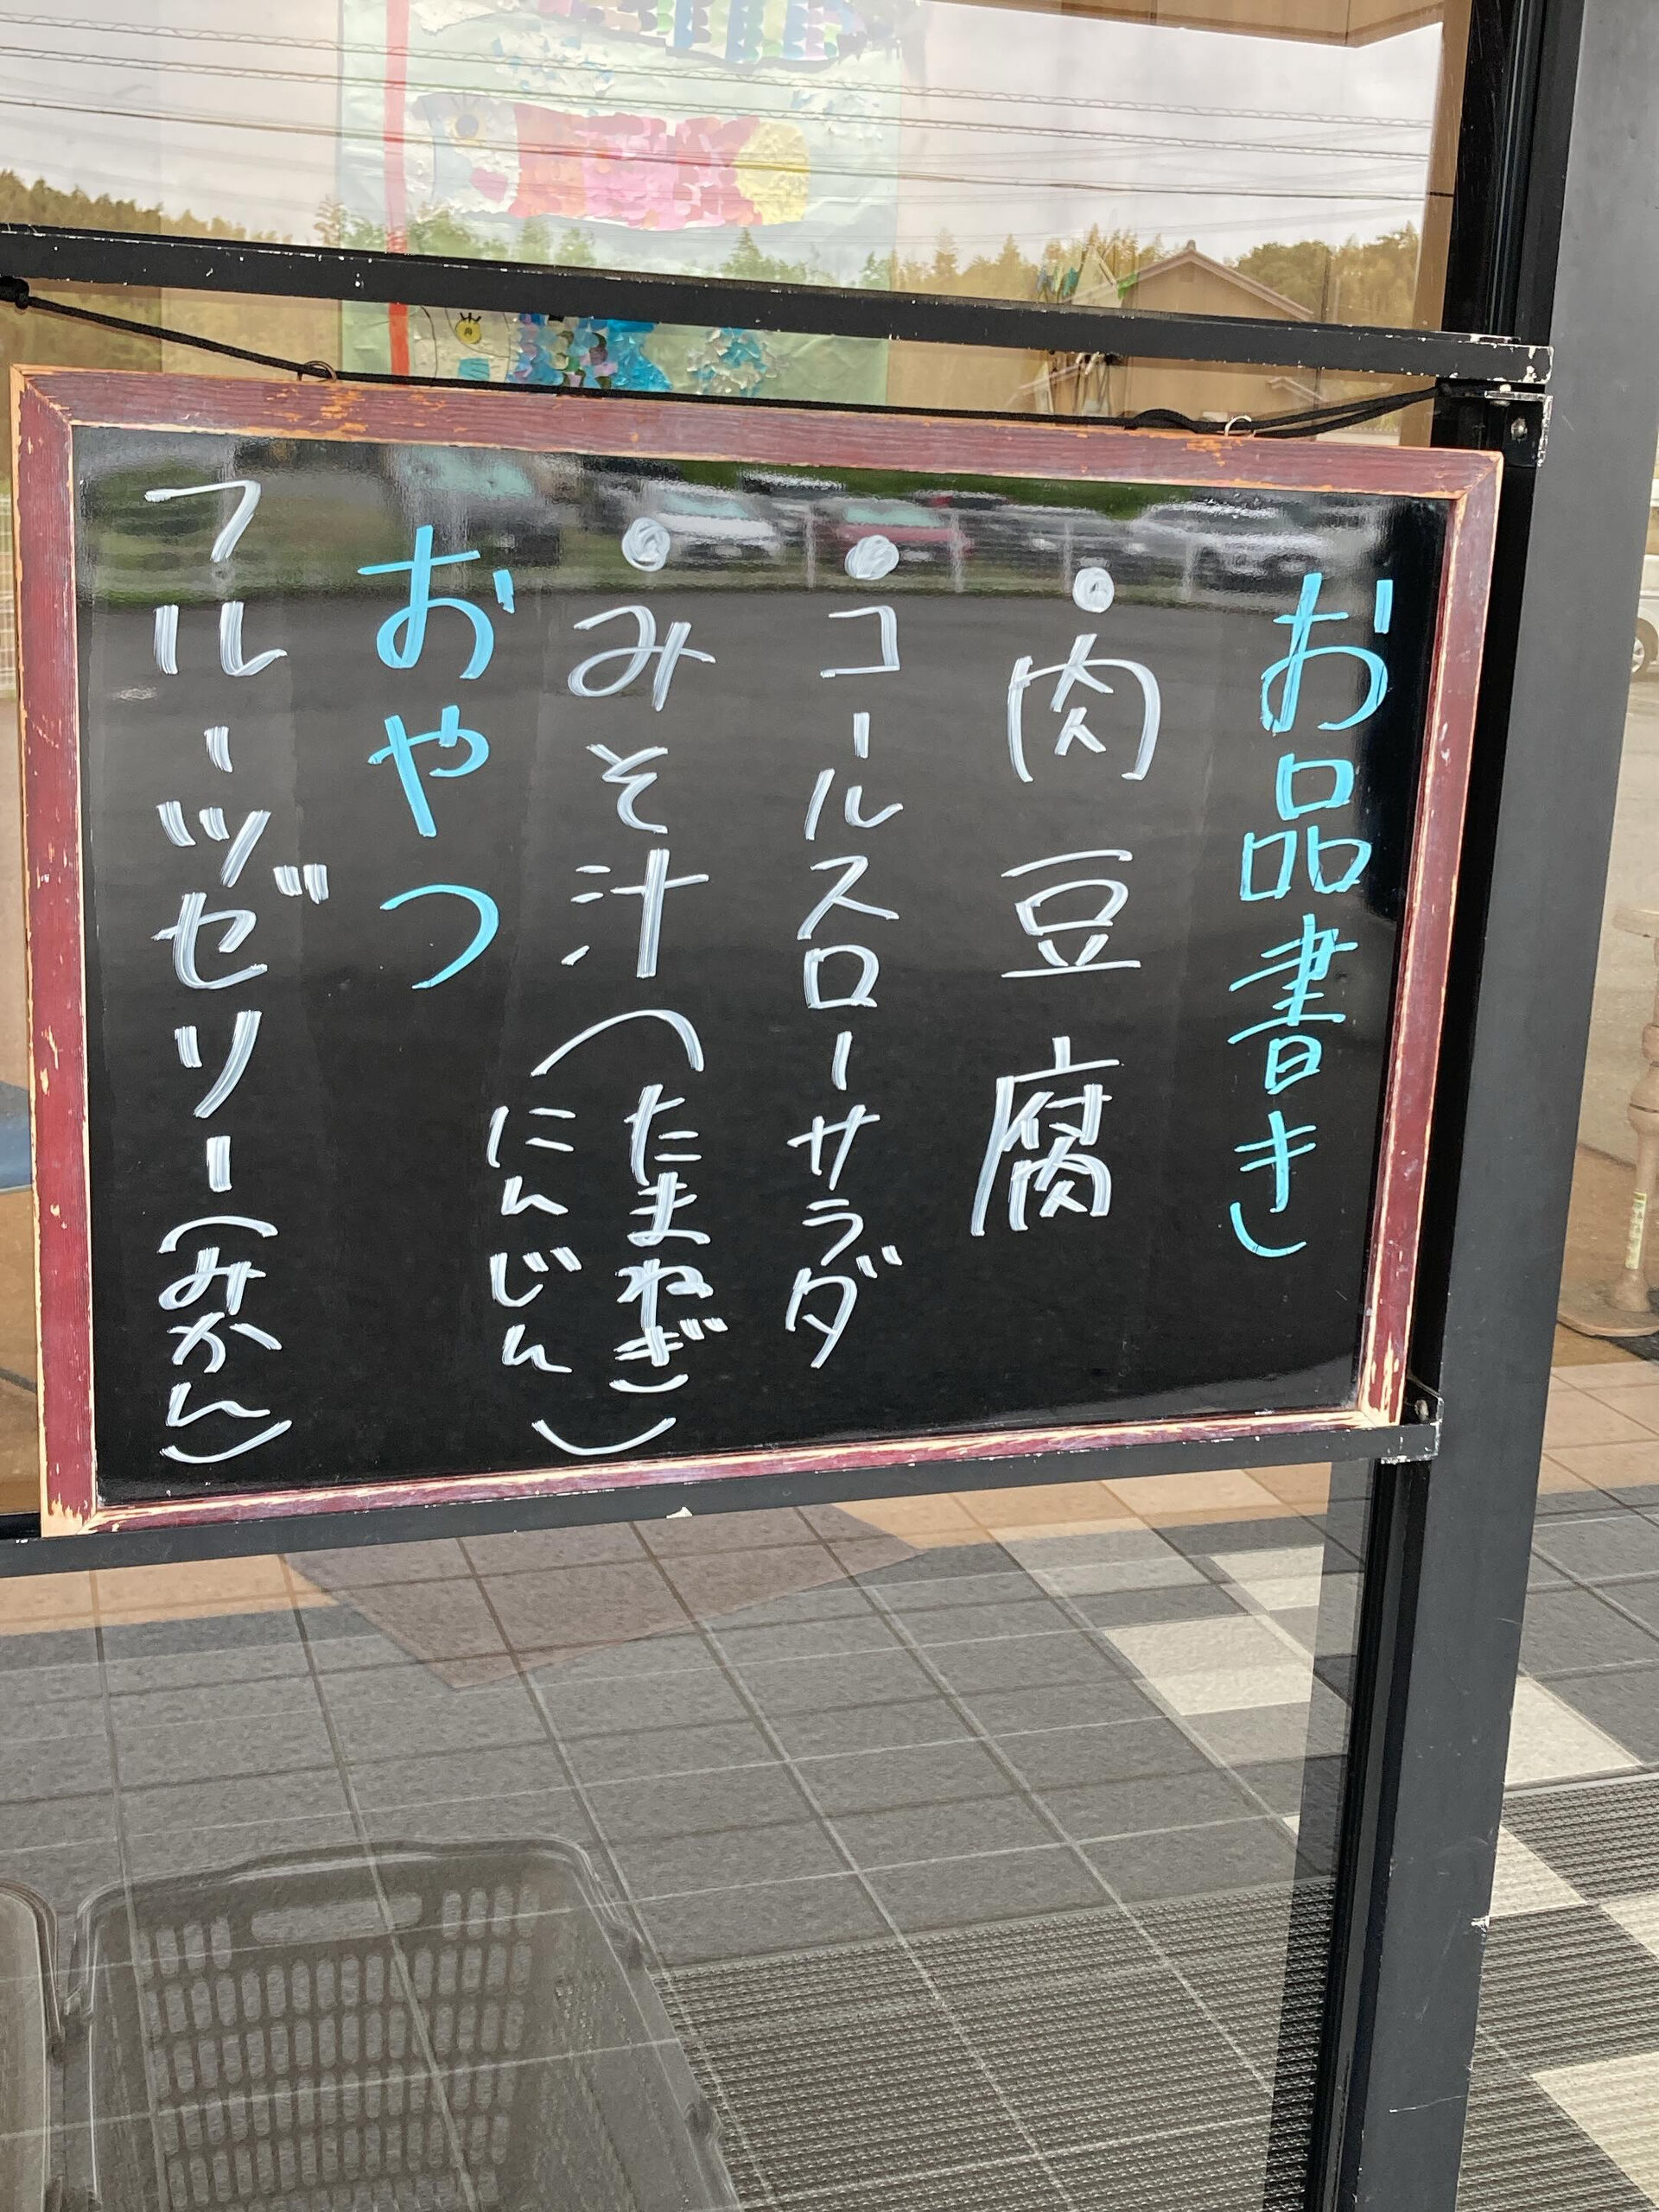 お品書き
・肉豆腐
・コールスローサラダ
・みそ汁(たまねぎ)
にんじん)
おやつ
フルーツゼリー(みかん)